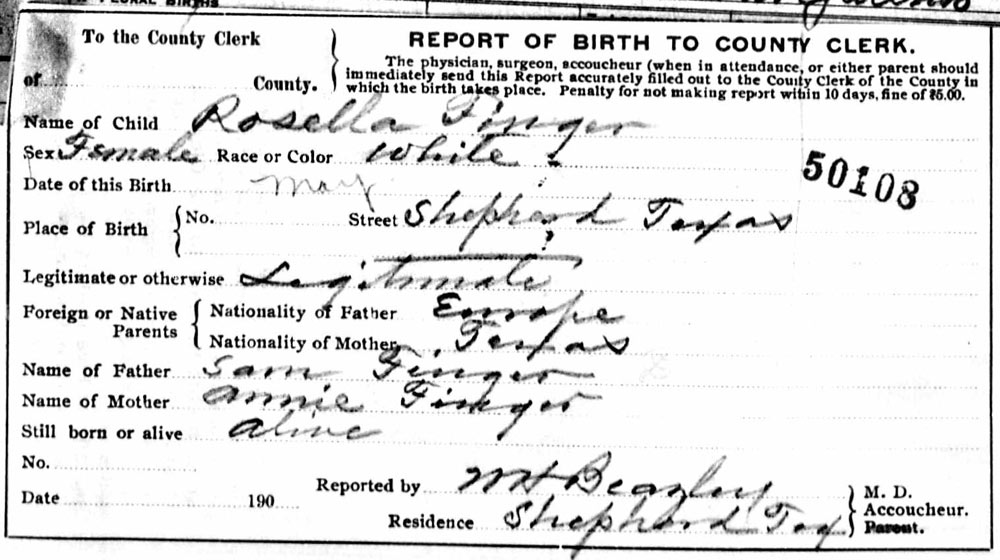 To the County Clerk
of County.
REPORT OF BIRTH TO COUNTY CLERK.
The physician, surgeon, accoucheur (when in attendance, or either parent should
immediately send this Report accurately filled out to the County Clerk of the County in
which the birth takes place. Penalty for not making report within 10 days, fine of $5.00.
Name of Child Rosella Finger
Sex Female Race or Color White
50108
Date of this Birth May
Place of Birth No. Street Shepherd Texas
Legitimate or otherwise Legitimate
Foreign or Native Parents Nationality of Father Europe
Nationality of Mother Texas
Name of Father Sam Finger
Name of Mother Annie Finger
Still born or alive alive
No.
Date 190
Reported by WH Beazley
Residence Shepherd Tex
M. D.
Accoucheur.
Parent.